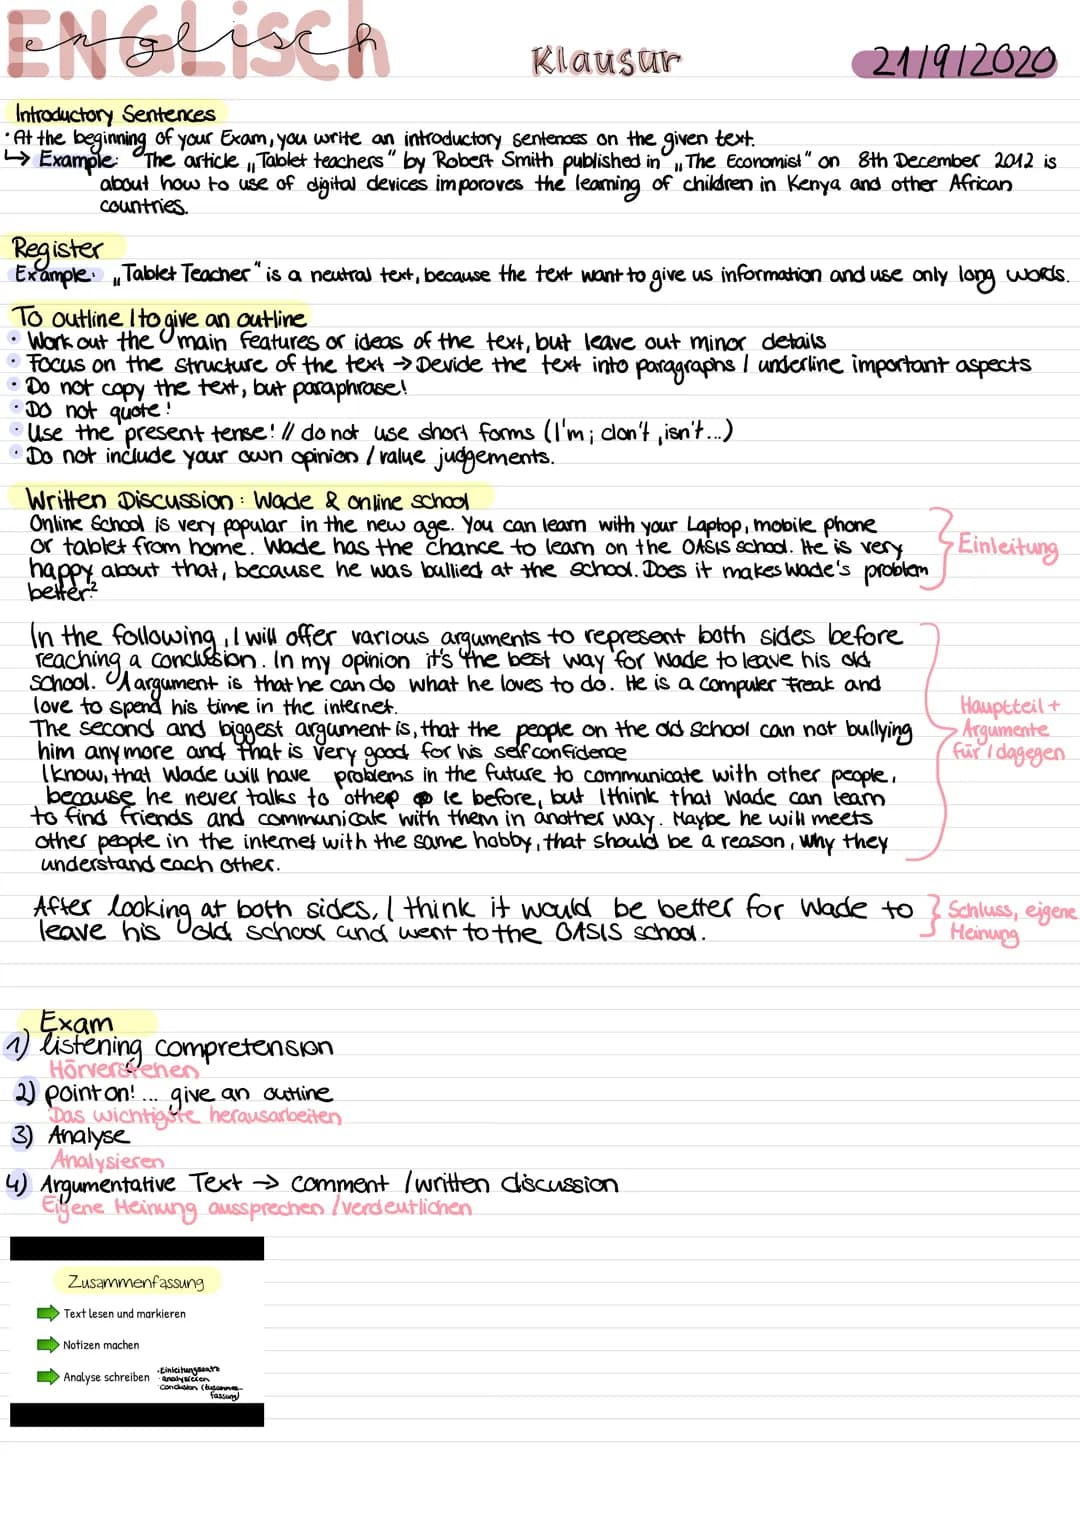 ENGLISCH
englisch
Klausur
21/9/2020
Introductory Sentences
· At the beginning of your Exam, you write an introductory sentences on the given text.
↳ Example: The article „Tablet teachers" by Robert Smith published in „The Economist" on 8th December 2012 is
about how to use of digital devices imporoves the learning of children in Kenya and other African
countries.
Register
Example: „Tablet Teacher" is a neutral text, because the text want to give us information and use only long words.
To outline / to give an outline
· Work out the main features or ideas of the text, but leave out minor details
· Focus on the structure of the text → Devide the text into paragraphs / underline important aspects
· Do not copy the text, but paraphrase!
· Do not quote!
· Use the present tense! // do not use short forms (I'm; don't, isn't...)
· Do not include your own opinion / value judgements.
Written Discussion: Wade & online school
Online School is very popular in the new age. You can learn with your Laptop, mobile phone
or tablet from home. Wade has the chance to learn on the OASIS school. He is very
happy about that, because he was bullied at the school. Does it makes Wade's problem
better?
Einleitung
In the following, I will offer various arguments to represent both sides before
reaching a conclusion. In my opinion it's the best way for Wade to leave his old
school. 1 argument is that he can do what he loves to do. He is a computer freak and
love to spend his time in the internet.
The second and biggest argument is, that the people on the old school can not bullying
him anymore and that is very good for his selfconfidence
I know, that Wade will have problems in the future to communicate with other people,
because he never talks to other le before, but I think that Wade can learn
to find friends and communicate with them in another way. Maybe he will meets
other people in the internet with the same hobby, that should be a reason, why they
understand each other.
Hauptteil +
Argumente
für / dagegen
After looking at both sides, I think it would be better for Wade to
leave his old school and went to the OASIS school.
Schluss, eigene
Meinung
Exam
1) listening compretension
Hörverstehen
2) point on! ... give an outline
Das wichtigste herausarbeiten
3) Analyse
Analysieren
4) Argumentative Text → comment / written discussion
Eigene Meinung aussprechen / verdeutlichen
Zusammenfassung
Text lesen und markieren
Notizen machen
Analyse schreiben
· Einleitungssatz
· analysieren
· Conclusion (zusammen-
fassung)